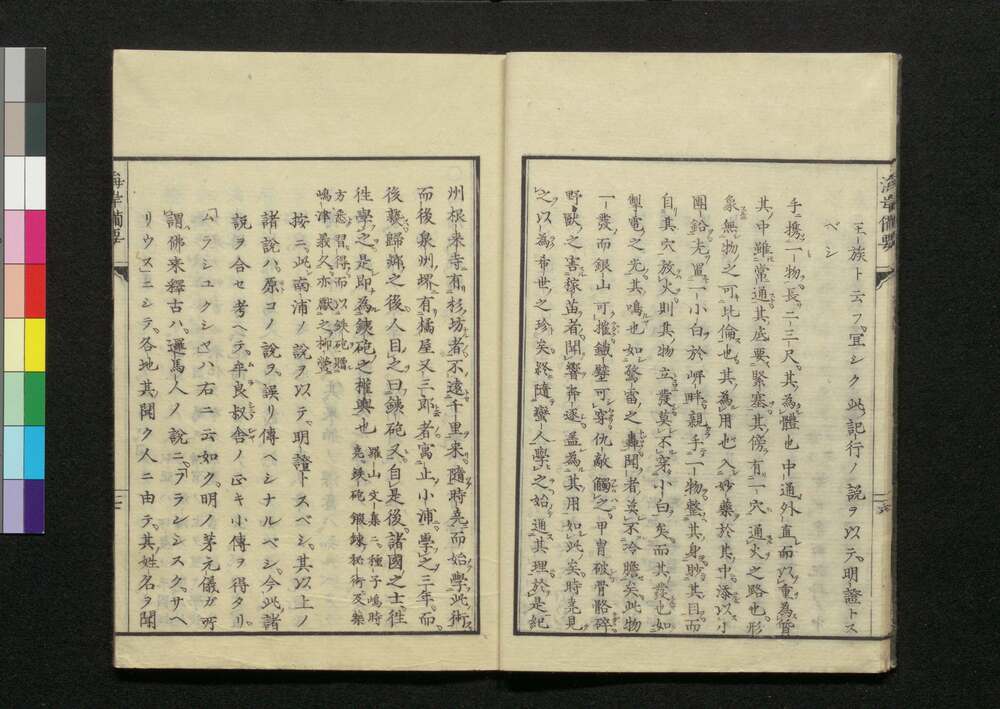 王族ト云フ宜シク此記行ノ説ヲ以テ明證トス
ベシ
手携一物長二三尺其為體也中通外直而以重為質
其中雖常通其底要緊塞其傍有一穴通火之路也形
象無物之可比倫也其為用也入妙藥於其中添以小
團鉛先置一小白於岬畔親手一物整其身眇其目而
自其穴放火則其物立發莫不定小白矣而其發也如
掣電之光其鳴也如驚雷之轟聞者莫不冷膽矣此物
一發而銀山可摧鐵壁可穿仇敵觸之甲冑破骨骼碎
野獸之害稼苗者聞響奔逐蓋為其用如此矣時堯見
之以為希世之珍矣終隨蠻人學之始通其理於是紀
州根来寺有杉坊者不遠千里来隨時堯而始學此術
而後泉州堺有橘屋又三郎者寓止小浦學之三年而
後襲歸鄕之後人目之曰鉄砲又自是後諸國之士徃
徃學之是即為鉄砲之權輿也 羅山文集ニ種子嶋時
堯鉄砲鍜錬秘術及藥
方悉習得而以鉄砲贈
嶋津義久亦獻之柳營
按ニ此南浦ノ説ヲ以テ明證トスベシ其以上ノ
諸説ハ原コノ説ヲ誤リ傳ヘシナルベシ今此諸
説ヲ合セ考ヘテ牟良叔舎ノ正キ小傳ヲ得タリ
「ムラシユクシヤハ右ニ云如ク明ノ茅元儀ガ所
謂佛来釋古ハ邏馬人ノ説ニフランシスクサヘ
リウス」ニシテ各地其聞ク人ニ由テ其姓名ヲ聞
海岸備要